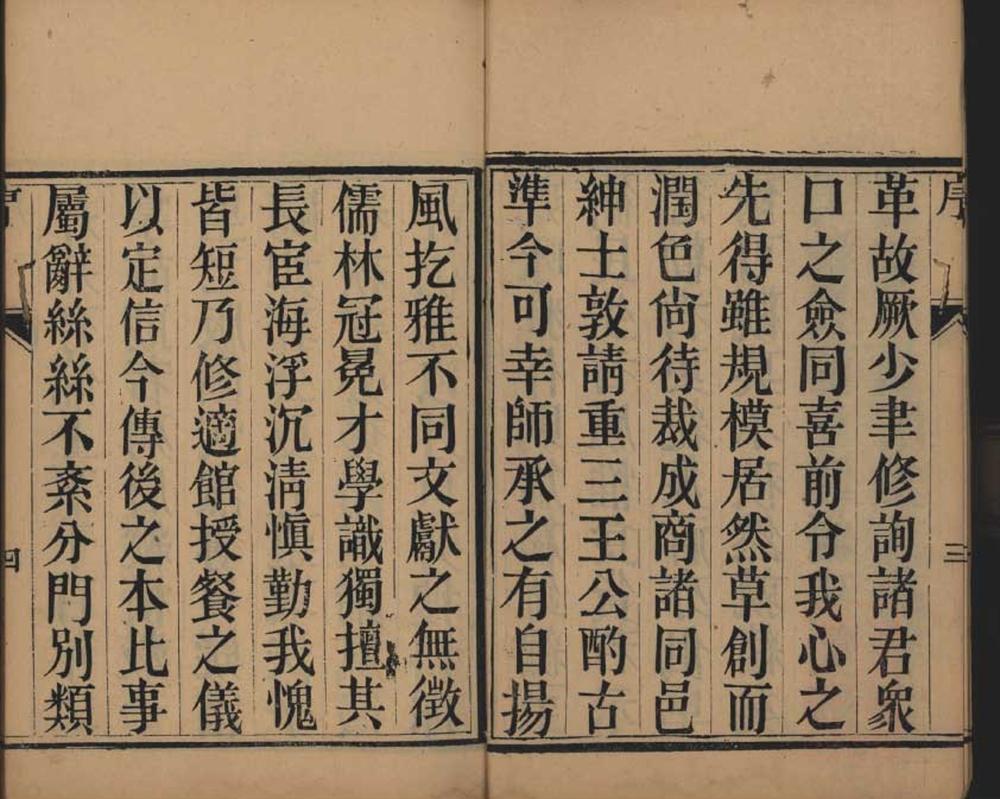 序
三
革故厥少聿修詢諸君衆
口之僉同喜前令我心之
先得雖規模居然草創而
潤色尙待裁成商諸同邑
紳士敦請重三王公酌古
準今可幸師承之有自揚
風扢雅不同文獻之無徵
儒林冠冕才學識獨擅其
長宦海浮沉淸慎勤我愧
皆短乃修適館授餐之儀
以定信今傳後之本比事
屬辭絲絲不紊分門別類
四